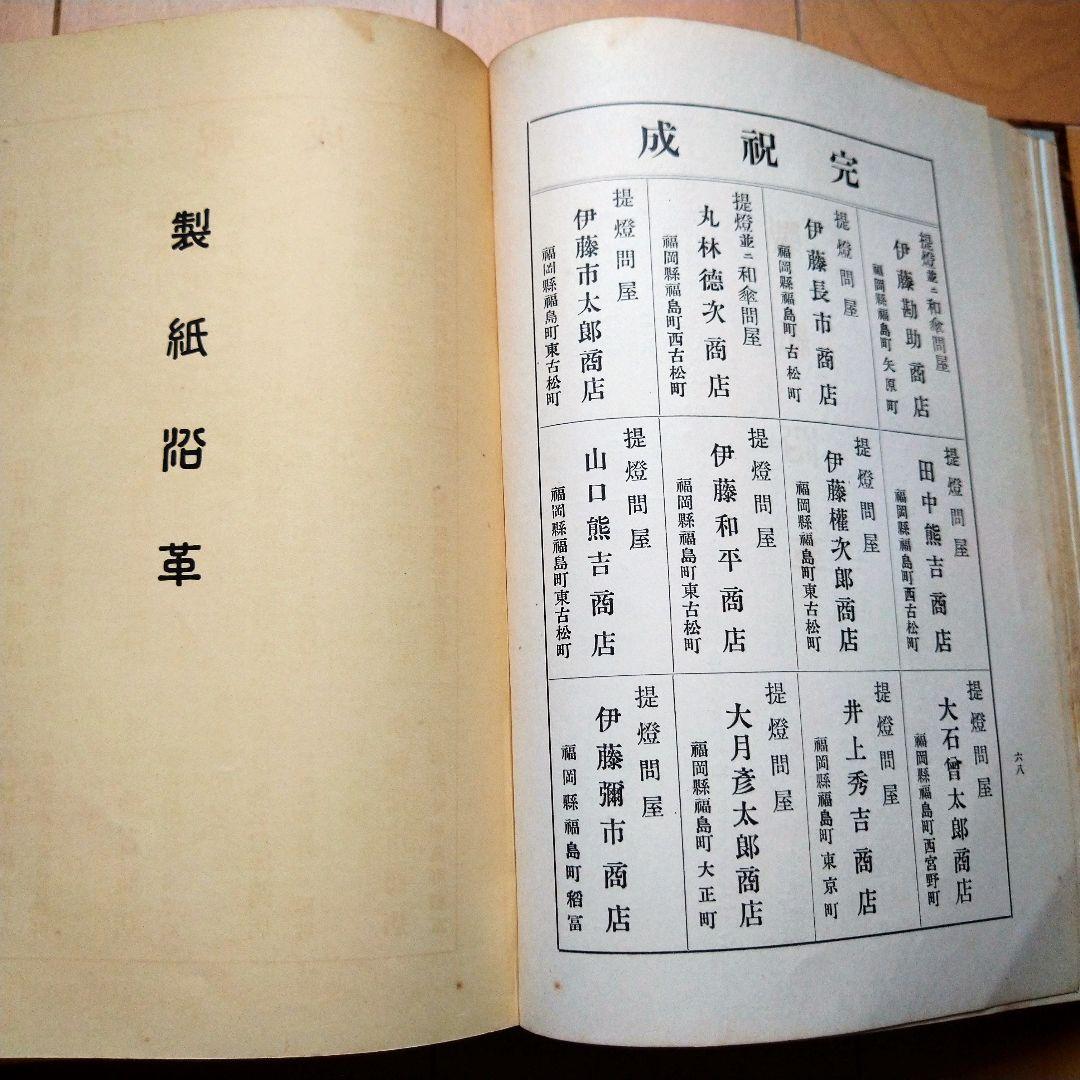 完祝成
提燈並ニ和傘問屋
伊藤勘助商店
福岡縣福島町矢原町
提燈問屋
伊藤長市商店
福岡縣福島町古松町
提燈並ニ和傘問屋
丸林德次商店
福岡縣福島町西古松町
提燈問屋
伊藤市太郎商店
福岡縣福島町東古松町
提燈問屋
田中熊吉商店
福岡縣福島町西古松町
提燈問屋
伊藤權次郎商店
福岡縣福島町東古松町
提燈問屋
伊藤和平商店
福岡縣福島町東古松町
提燈問屋
山口熊吉商店
福岡縣福島町東古松町
提燈問屋
大石曾太郎商店
福岡縣福島町西宮野町
提燈問屋
井上秀吉商店
福岡縣福島町東京町
提燈問屋
大月彥太郎商店
福岡縣福島町大正町
提燈問屋
伊藤彌市商店
福岡縣福島町稻冨
六八
製紙沿革